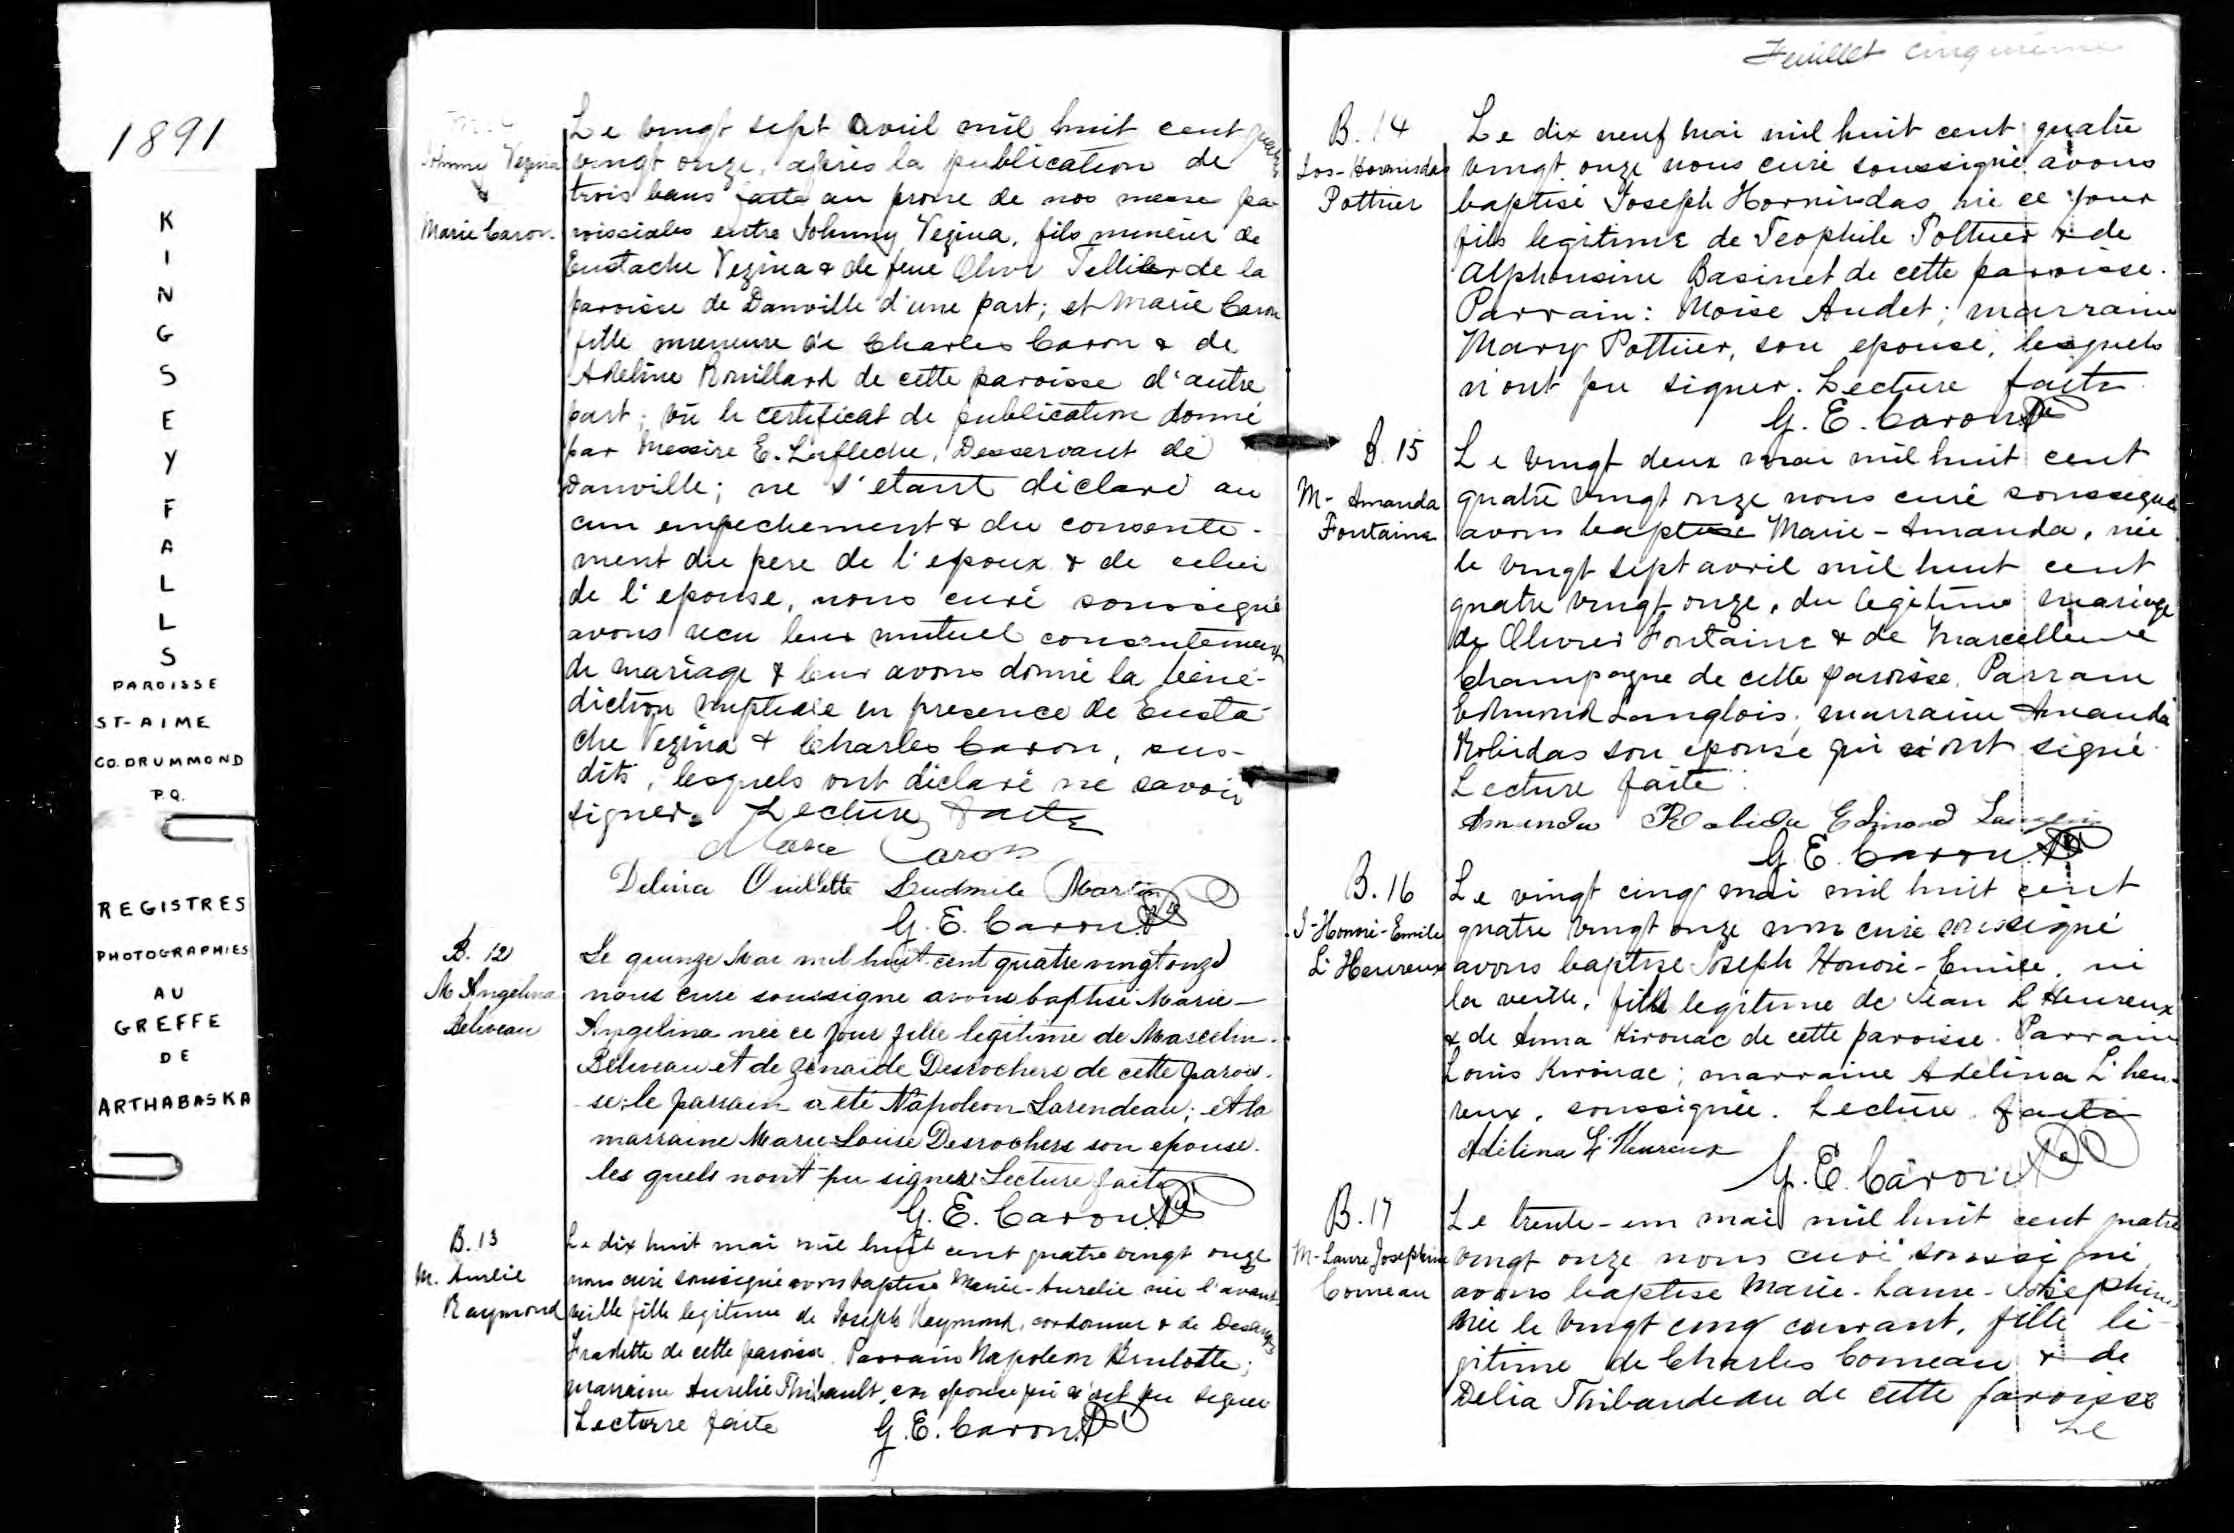 1891
K
I
N
G
S
E
Y
F
A
L
L
S
PAROISSE
ST-AIME
CO. DRUMMOND
P.Q.
REGISTRES
PHOTOGRAPHIES
AU
GREFFE
DE
ARTHABASKA
Johnny Vezina
&
Marie Caron
Le vingt sept avril mil huit cent quatre
vingt onze, après la publication de
trois bans faite au prone de nos messe pa
roissiales entre Johnny Vezina, fils mineur de
Eustache Vezina & de feue Olive Tellier de la
paroisse de Danville d'une part; et Marie Caron
fille mineure de Charles Caron & de
Adeline Rouillard de cette paroisse d'autre
part; vu le certificat de publication donné
par Messire E. Lafleche, Desservant de
Danville; ne s'etant déclaré au
cun empechement & du consente-
ment du pere de l'epoux & de celui
de l'epouse, nous curé soussigné
avons recu leur mutuel consentement
de mariage & leur avons donné la béné-
diction nuptiale en presence de Eusta-
che Vezina & Charles Caron, sus-
dits, lesquels ont déclaré ne savoir
signer. Lecture faite
Marie Caron
Delina Ouillette Ludmile Martin
G. E. Caron Ptre
B. 12
M Angelina
Beliveau
Le quinze Mai mil huit cent quatre vingt onze
nous cure soussigne avons baptisé Marie-
Angelina née ce jour fille legitime de Marcelin
Béliveau et de Zenaide Desrochers de cette parois-
se; le parrain a été Napoleon Larendeau; et la
marraine Marie-Louise Desrochers son epouse.
les quels nont pu signer Lecture faite
G. E. Caron Ptre
B. 13
M. Aurelie
Raymond
Le dix huit mai mil huit cent quatre vingt onze
nous curé soussigné avons baptisé Marie-Aurelie née l'avant
veille fille legitime de Joseph Raymond, cordonnier & de Desanges
Fradette de cette paroisse. Parrain Napoleon Brulotte;
marraine Aurelie Thibault, son epouse qui n'ont pu signer
Lecture faite G. E. Caron Ptre
Feuillet cinquième
B. 14
Jos-Hormisdas
Pothier
Le dix neuf mai mil huit cent quatre
vingt onze nous curé soussigné avons
baptisé Joseph Hormisdas né ce jour
fils legitime de Teophile Pothier & de
Alphonsine Basinet de cette paroisse.
Parrain: Moise Audet; marraine
Mary Pothier, son epouse, lesquels
n'ont pu signer. Lecture faite
G. E. Caron Ptre
B. 15
M- Amanda
Fontaine
Le vingt deux mai mil huit cent
quatre vingt onze nous curé soussigné
avons baptise Marie-Amanda, née
le vingt sept avril mil huit cent
quatre vingt onze, du legitime mariage
de Olivier Fontaine & de Marcelline
Champagne de cette paroisse. Parrain
Edmond Langlois; marraine Amanda
Robidas son epouse qui ont signé.
Lecture faite
Amanda Robida Edmond Langlois
G. E. Caron Ptre
B. 16
J-Honoré-Emile
L'Heureux
Le vingt cinq mai mil huit cent
quatre vingt onze nous curé soussigné
avons baptise Joseph Honoré-Emile, né
la veille, fils legitime de Jean L'Heureux
& de Anna Kirouac de cette paroisse. Parrain
Louis Kirouac; marraine Adelina L'heu-
reux, soussignée. Lecture faite
Adelina L'Heureux
G. E. Caron Ptre
B. 17
M-Laure Josephine
Comeau
Le trente-un mai mil huit cent quatre
vingt onze nous curé soussigné
avons baptise Marie-Laure-Josephine
née le vingt cinq courant, fille lé-
gitime de Charles Comeau & de
Delia Thibaudeau de cette paroisse
Le